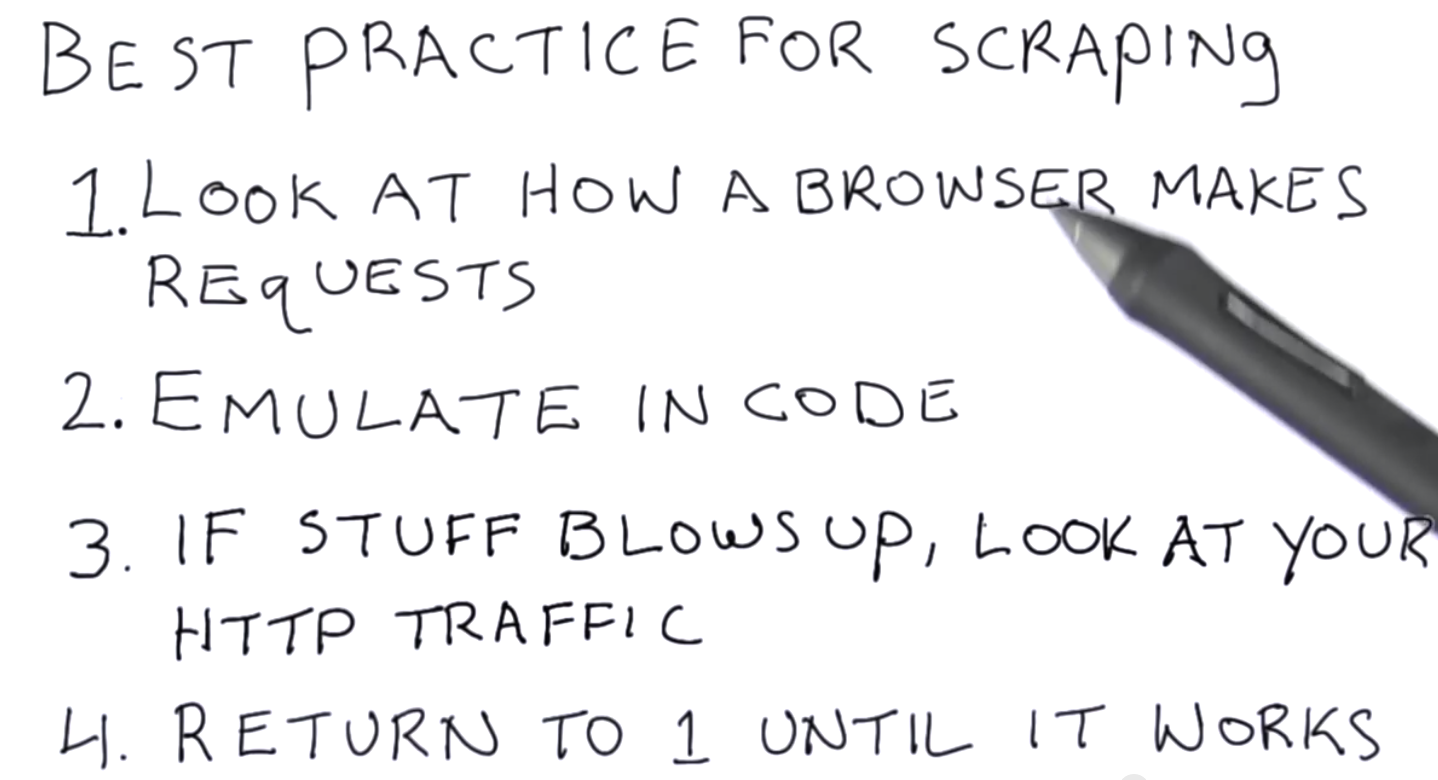 BEST PRACTICE FOR SCRAPINg
1. LOOK AT HOW A BROWSER MAKES
REqUESTS
2. EMULATE IN CODE
3. IF STUFF BLOWS UP, LOOK AT YOUR
HTTP TRAFFIC
4. RETURN TO 1 UNTIL IT WORKS